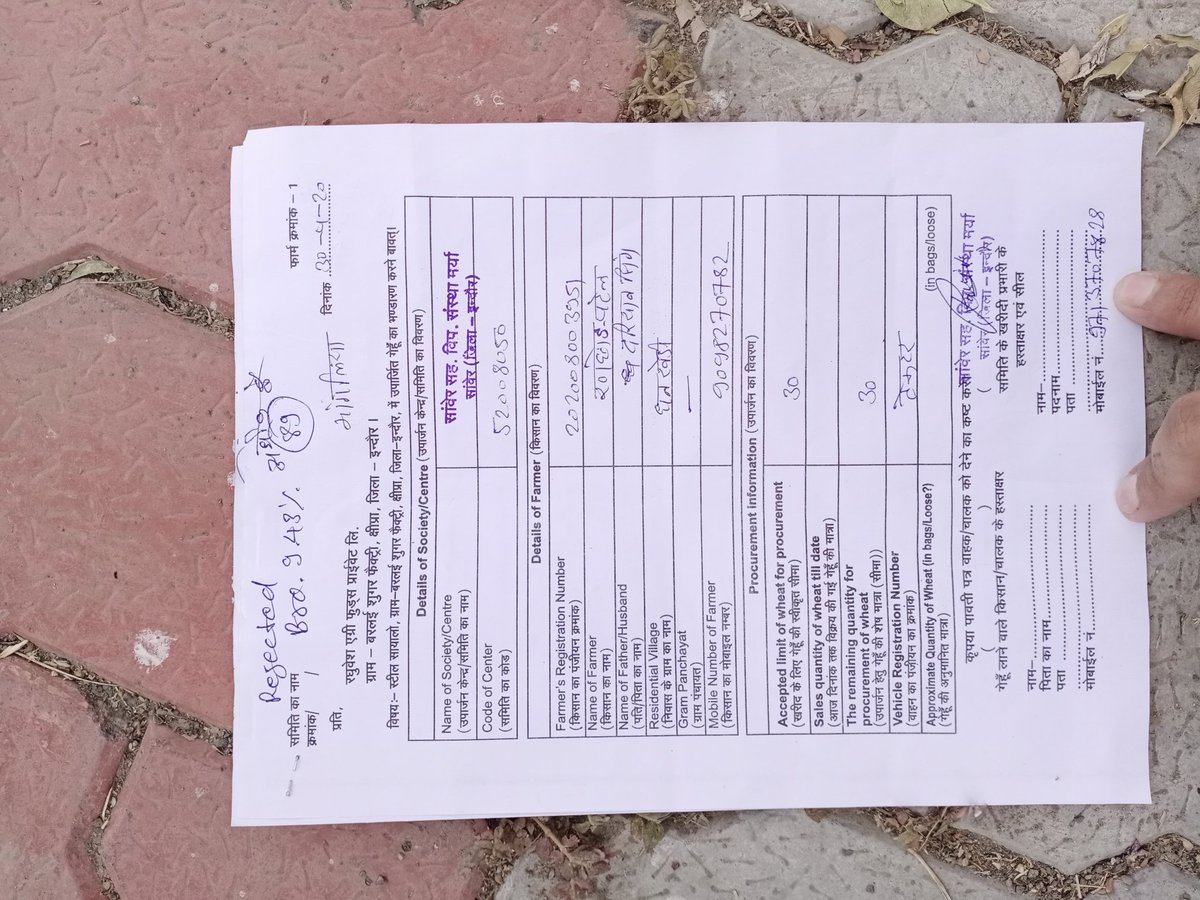 Rejected
Bro. 9.43%
89
समिति का नाम
फार्म क्रमांक – 1
क्रमांक/ /
मांगलिया
दिनांक 30-4-20
प्रति,
रघुवेश एग्री फुड्स प्राईवेट लि.
ग्राम – बरलई शुगर फैक्ट्री, क्षीप्रा, जिला – इन्दौर ।
विषय:– स्टील सायलो, ग्राम–बरलई शुगर फैक्ट्री, क्षीप्रा, जिला–इन्दौर, में उपार्जित गेहूँ का भण्डारण करने बावत्।
Details of Society/Centre (उपार्जन केन्द्र/समिति का विवरण)
Name of Society/Centre
(उपार्जन केन्द्र/समिति का नाम)
सांवेर सह. विप. संस्था मर्या
सांवेर (जिला – इन्दौर)
Code of Center
(समिति का कोड)
Details of Farmer (किसान का विवरण)
Farmer's Registration Number
(किसान का पंजीयन क्रमांक)
Name of Farmer
(किसान का नाम)
Name of Father/Husband
(पति/पिता का नाम)
दरियाव सिंग
Residential Village
(निवास के ग्राम का नाम)
धनखेडी
Gram Panchayat
(ग्राम पंचायत)
Mobile Number of Farmer
(किसान का मोबाइल नम्बर)
9098270782
Procurement information (उपार्जन का विवरण)
Accepted limit of wheat for procurement
(खरीद के लिए गेहूँ की स्वीकृत सीमा)
30
Sales quantity of wheat till date
(आज दिनांक तक विक्रय की गई गेहूँ की मात्रा)
The remaining quantity for
procurement of wheat
(उपार्जन हेतु गेहूँ की शेष मात्रा (सीमा))
30
Vehicle Registration Number
(वाहन का पंजीयन का क्रमांक)
Approximate Quantity of Wheat (in bags/Loose?)
(गेहूँ की अनुमानित मात्रा)
(in bags/loose)
कृपया पावती पत्र वाहक/चालक को देने का कष्ट करें।
सांवेर सह. विप. संस्था मर्या
( ) ( सांवेर (जिला – इन्दौर)
गेहूँ लाने वाले किसान/चालक के हस्ताक्षर
समिति के खरीदी प्रभारी के
हस्ताक्षर एवं सील
नाम–
पिता का नाम
पता
मोबाईल न.
नाम–
पदनाम
पता
मोबाईल नं.